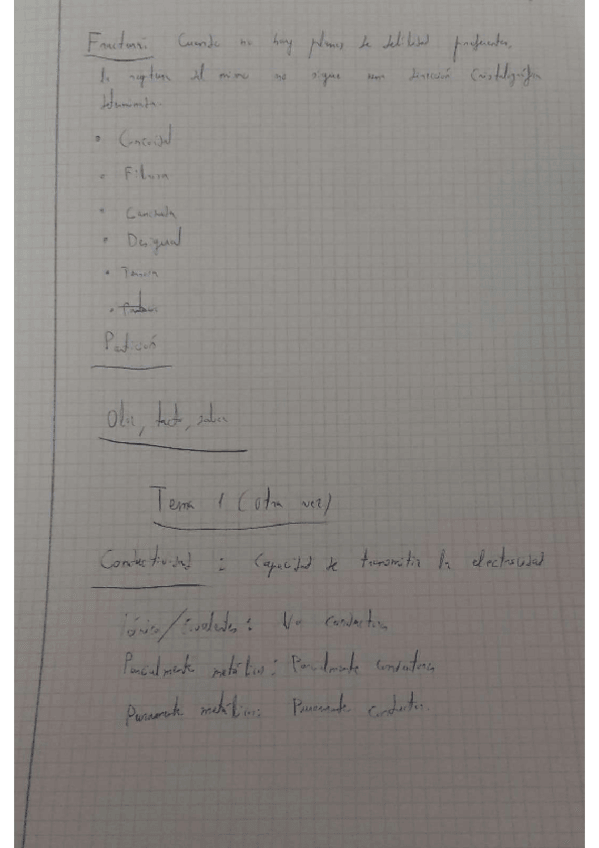 Fractura: Cuando no hay planos de debilidad preferentes,
la ruptura del mismo no sigue una dirección cristalográfica
determinada.
• Concoidal
• Fibrosa
• Ganchuda
• Desigual
• Terrosa
Partición
Olor, tacto, sabor
Tema 1 (otra vez)
Conductividad : Capacidad de transmitir la electricidad
Iónico/Covalentes: No conductor
Parcialmente metálico: Parcialmente conductora
Puramente metálico: Puramente conductor